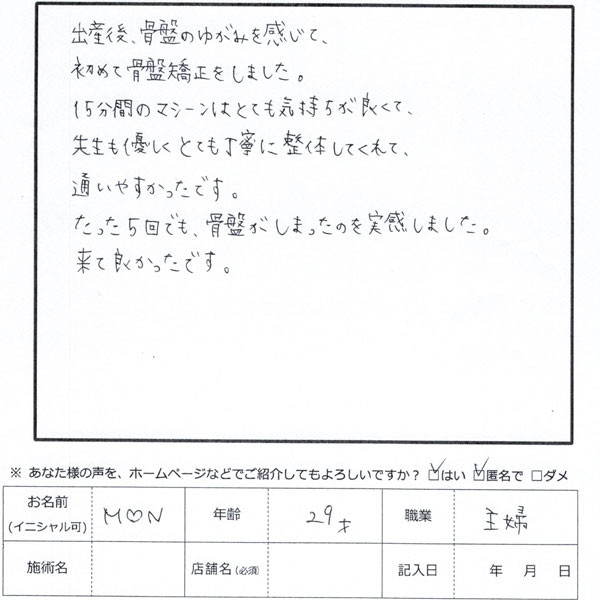 出産後、骨盤のゆがみを感じて、
初めて骨盤矯正をしました。
15分間のマシーンはとても気持ちが良くて、
先生も優しくとても丁寧に整体してくれて、
通いやすかったです。
たった5回でも、骨盤がしまったのを実感しました。
来て良かったです。
※ あなた様の声を、ホームページなどでご紹介してもよろしいですか？ ☑はい ☑匿名で □ダメ
お名前 (イニシャル可) M♡N 年齢 29才 職業 主婦
施術名 店舗名(必須) 記入日 年 月 日